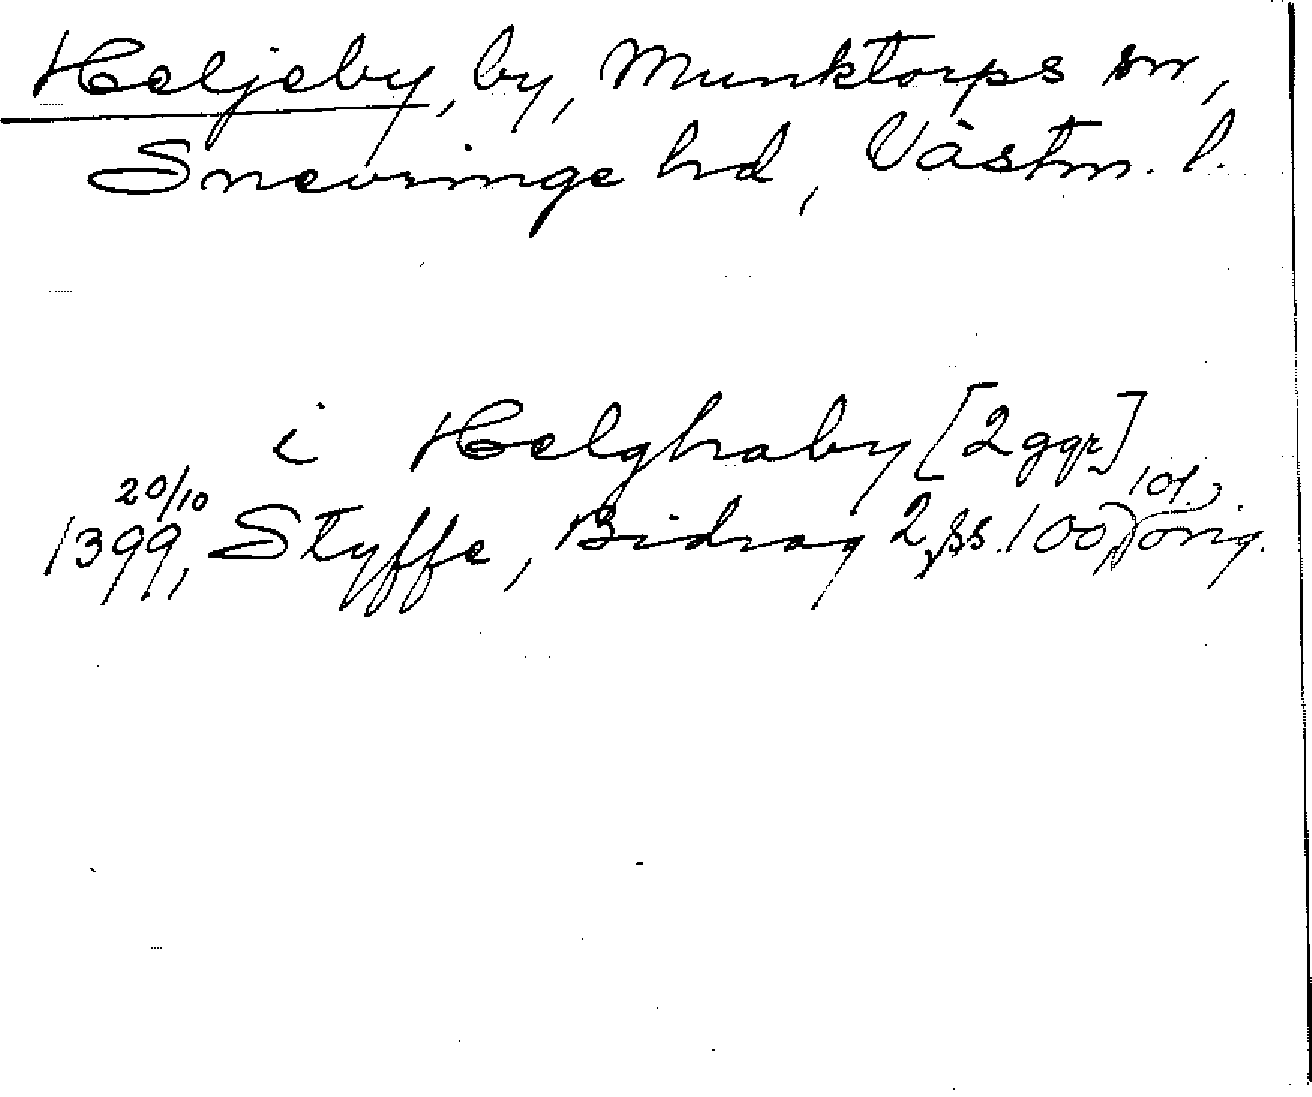 Heljeby, by, Munktorps sn,
Snevringe hd, Västm. l.
i Helghaby [2 ggr]
20/10 1399, Styffe, Bidrag 2, s. 100, orig.